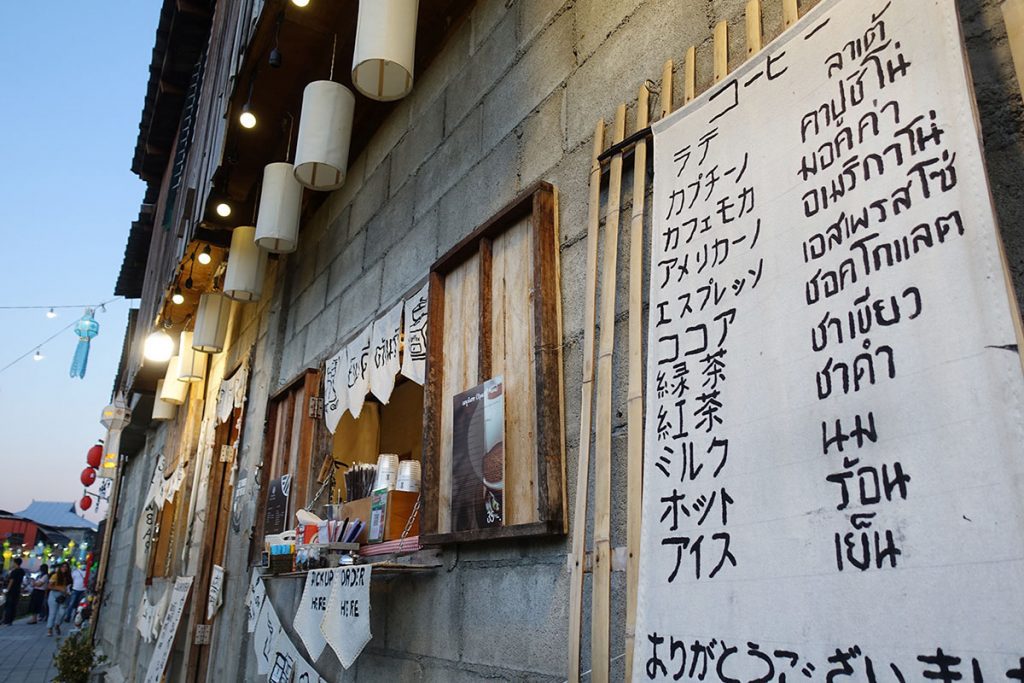 コーヒー
ラテ ลาเต้
カプチーノ คาปูชิโน่
カフェモカ มอคค่า
アメリカーノ อเมริกาโน่
エスプレッソ เอสเพรสโซ่
ココア ชอคโกแลต
緑茶 ชาเขียว
紅茶 ชาดำ
ミルク นม
ホット ร้อน
アイス เย็น
ありがとうございまし
PICKUP HERE
ORDER HERE
35.-